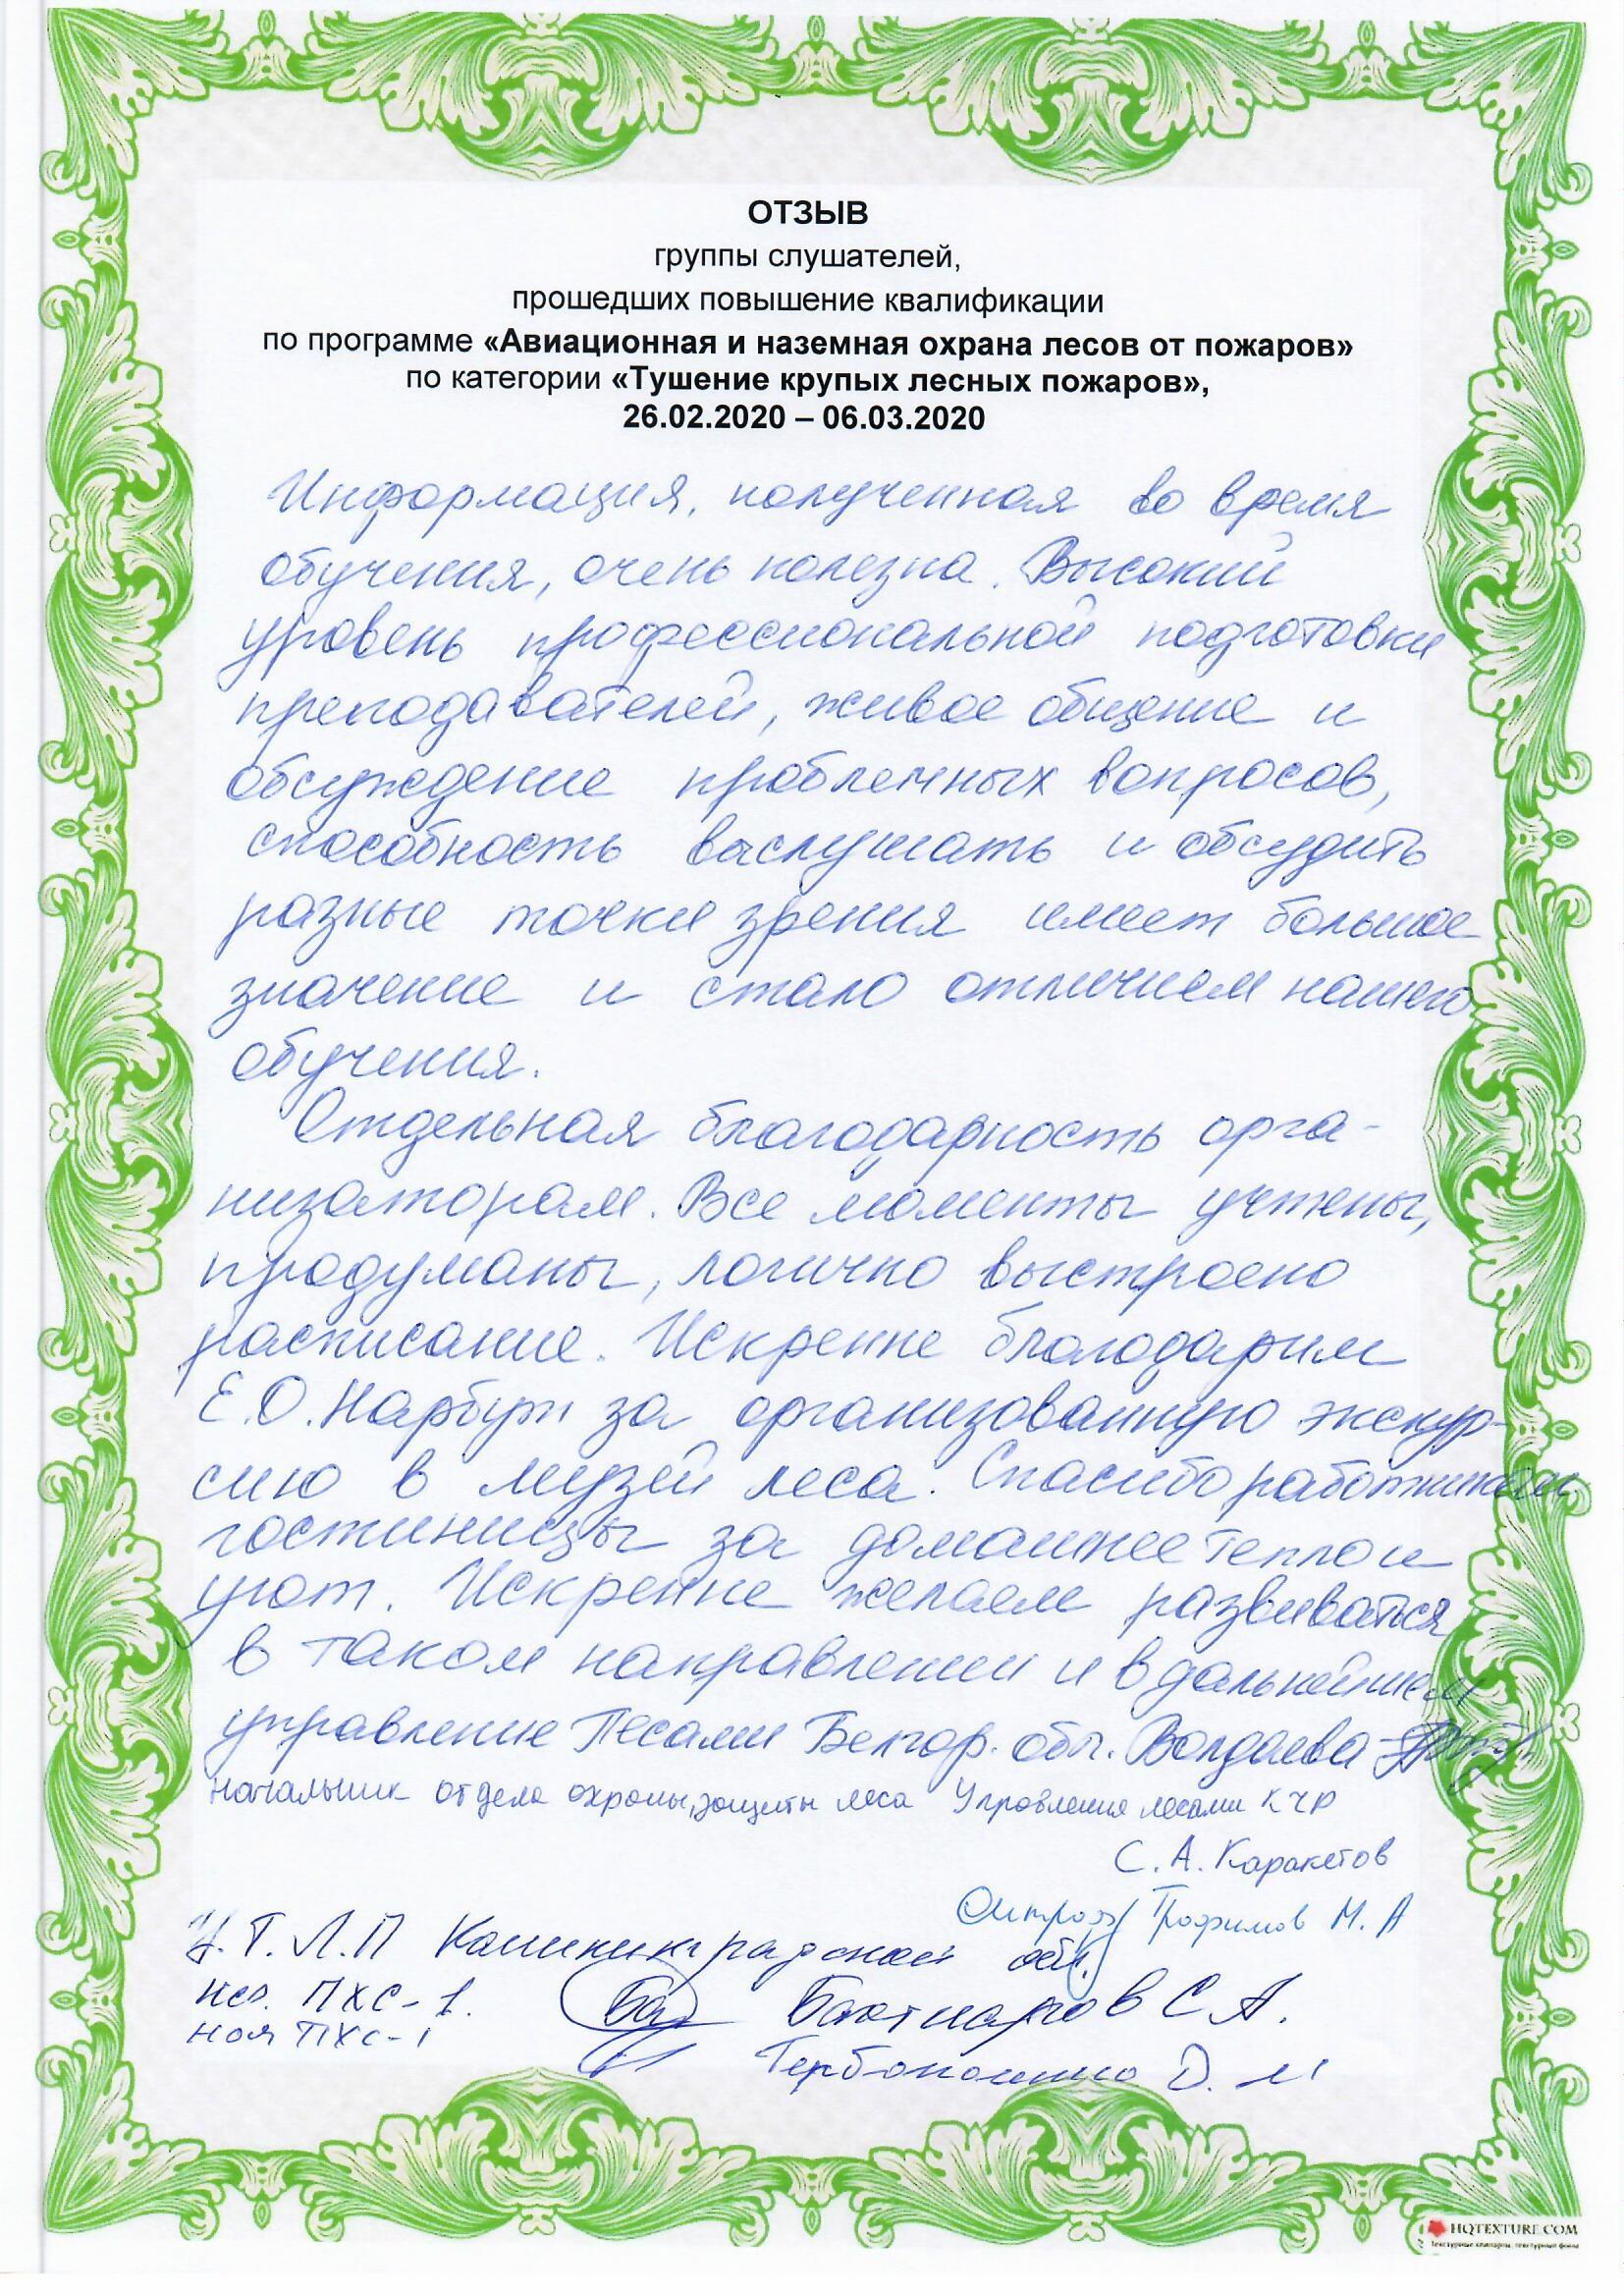 ОТЗЫВ
группы слушателей,
прошедших повышение квалификации
по программе «Авиационная и наземная охрана лесов от пожаров»
по категории «Тушение крупых лесных пожаров»,
26.02.2020 – 06.03.2020
Информация, полученная во время
обучения, очень полезна. Высокий
уровень профессиональной подготовки
преподавателей, живое общение и
обсуждение проблемных вопросов,
способность выслушать и обсудить
разные точки зрения имеет большое
значение и стало отличием нашего
обучения.
Отдельная благодарность орга-
низаторам. Все моменты учтены,
продуманы, логично выстроено
расписание. Искренне благодарим
Е.О. Нарбут за организованную экскур-
сию в музей леса. Спасибо работникам
гостиницы за домашнее тепло и
уют. Искренне желаем развиваться
в таком направлении и в дальнейшем
управление Лесами Белгор. обл. Валдаева
начальник отдела охраны, защиты леса Управления лесами КЧР
С. А. Каракетов
Трофимов М. А
Калининградской обл.
ПХС-1. С А.
ПХС-1 Д. М
HQTEXTURE.COM
Текстурные клипарты, текстурные фоны